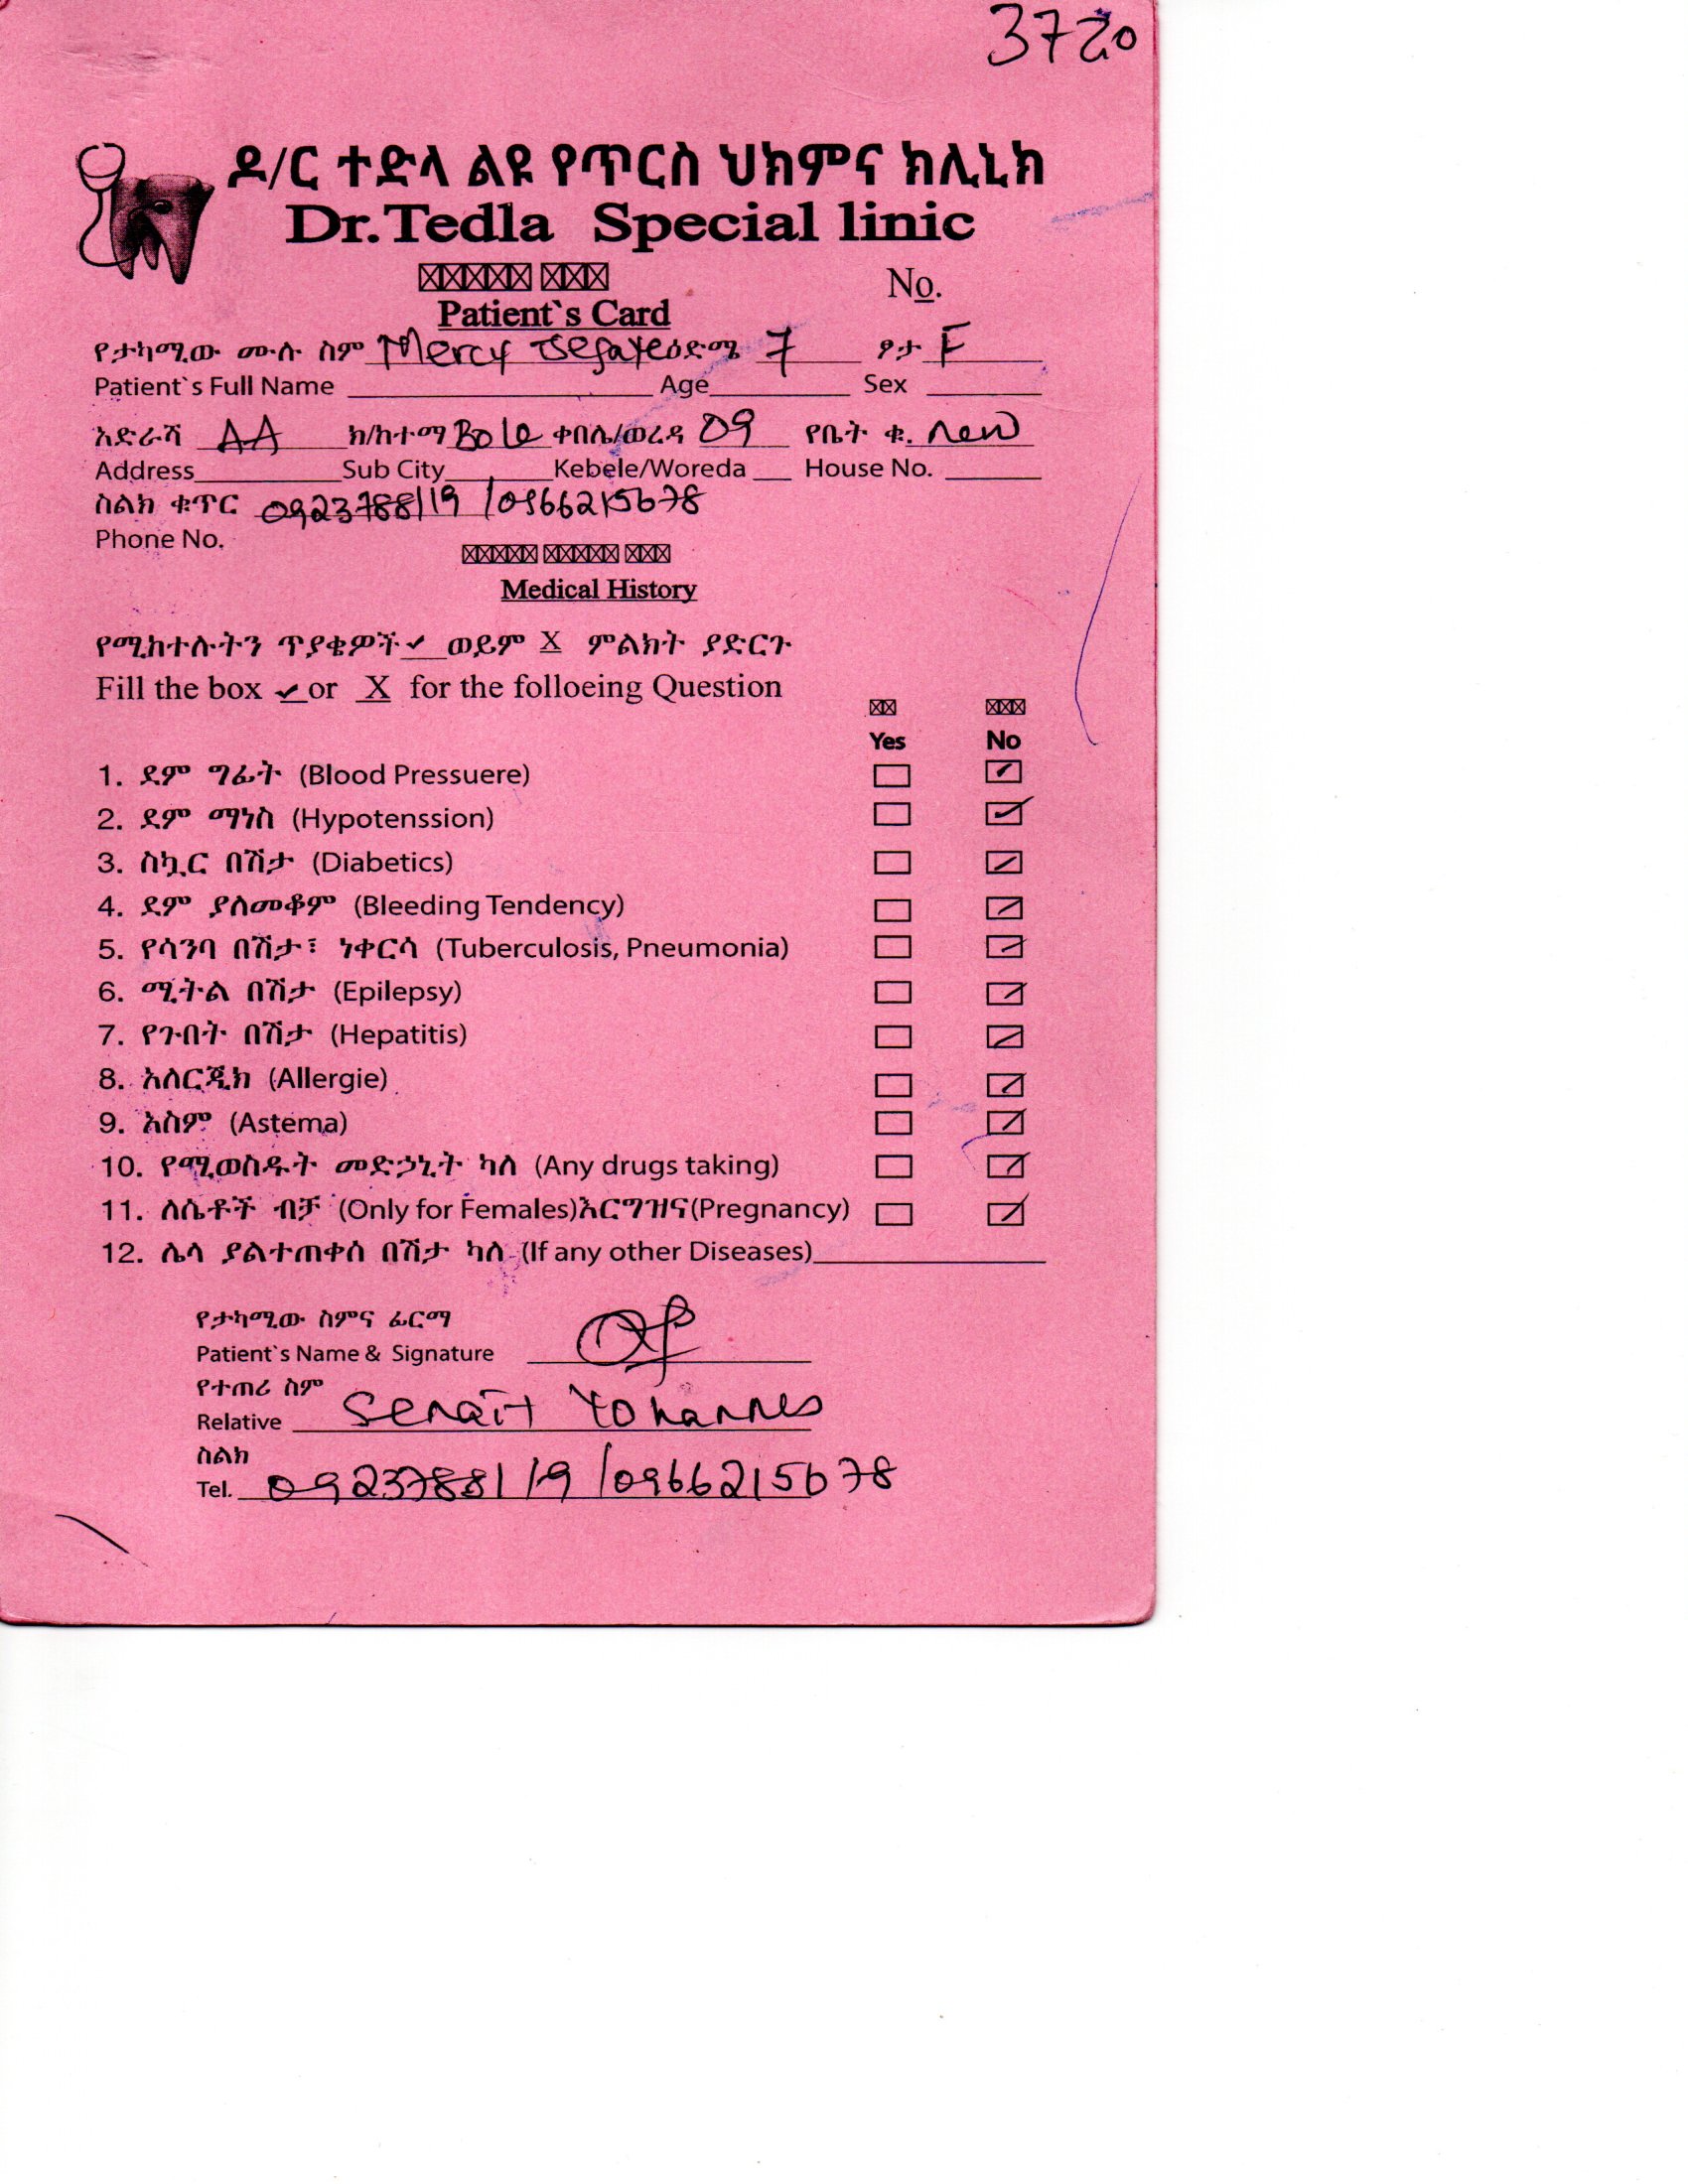 3720
ዶ/ር ተድላ ልዩ የጥርስ ህክምና ክሊኒክ
Dr.Tedla Special linic
No.
Patient`s Card
የታካሚው ሙሉ ስም Mercy Tsegaye ዕድሜ 7 ፆታ F
Patient`s Full Name Age Sex
አድራሻ AA ክ/ከተማ Bole ቀበሌ/ወረዳ 09 የቤት ቁ. new
Address Sub City Kebele/Woreda House No.
ስልክ ቁጥር 0923788119 /0966215678
Phone No.
Medical History
የሚከተሉትን ጥያቄዎች ✓ ወይም X ምልክት ያድርጉ
Fill the box ✓ or X for the folloeing Question
Yes No
1. ደም ግፊት (Blood Pressuere)
2. ደም ማነስ (Hypotenssion)
3. ስኳር በሽታ (Diabetics)
4. ደም ያለመቆም (Bleeding Tendency)
5. የሳንባ በሽታ፣ ነቀርሳ (Tuberculosis, Pneumonia)
6. ሚትል በሽታ (Epilepsy)
7. የጉበት በሽታ (Hepatitis)
8. አለርጂክ (Allergie)
9. አስም (Astema)
10. የሚወስዱት መድኃኒት ካለ (Any drugs taking)
11. ለሴቶች ብቻ (Only for Females)እርግዝና(Pregnancy)
12. ሌላ ያልተጠቀሰ በሽታ ካለ (If any other Diseases)
የታካሚው ስምና ፊርማ
Patient`s Name & Signature
የተጠሪ ስም
Relative Senait Yohannes
ስልክ
Tel. 0923788119 /0966215678